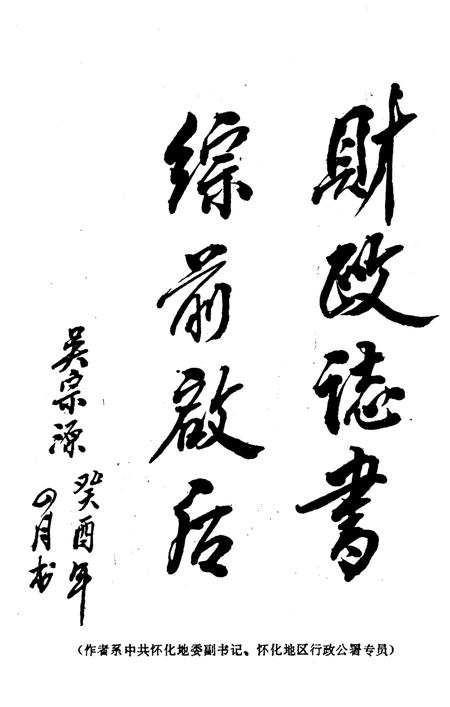 財政誌書
综前啟后
吴宗源
癸酉年
四月书
（作者系中共怀化地委副书记、怀化地区行政公署专员）